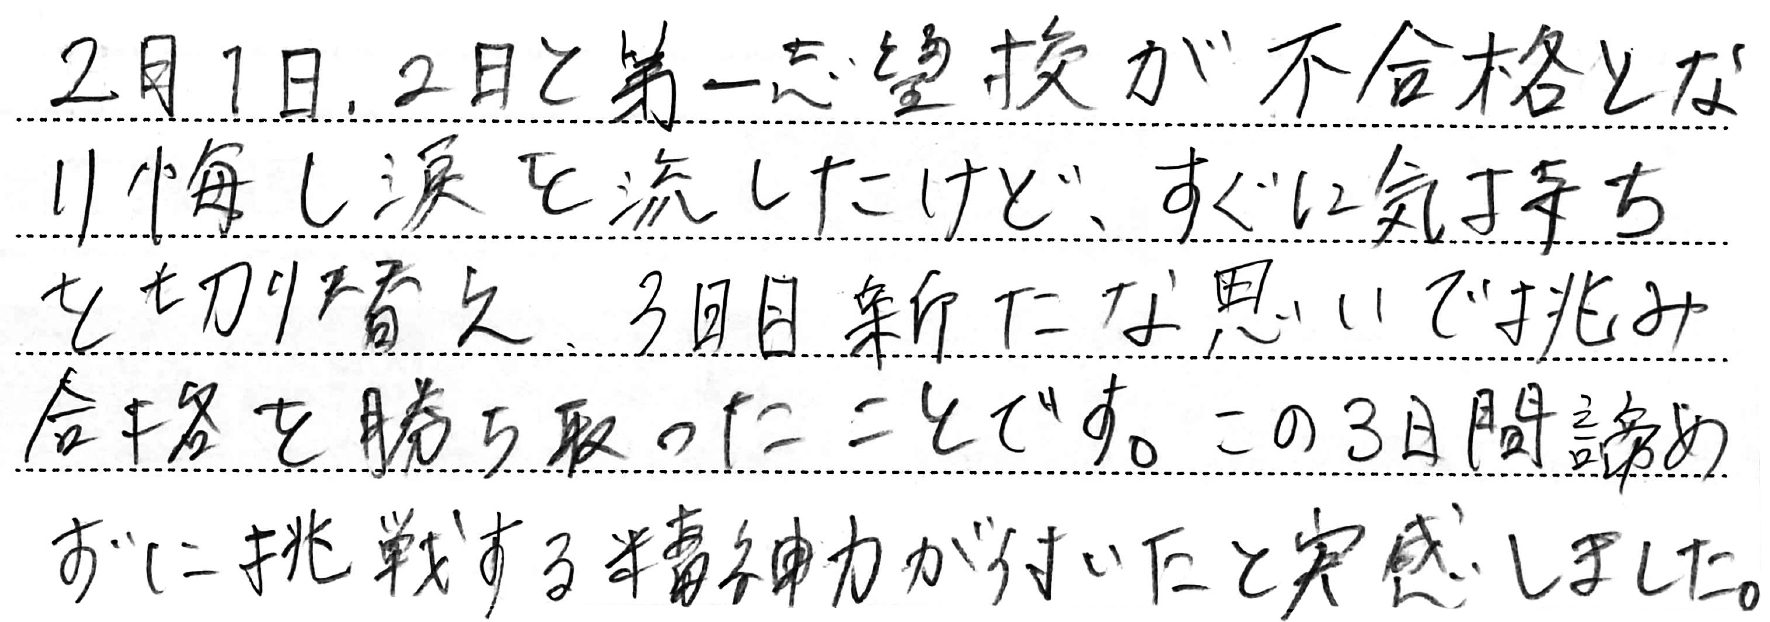 2月1日、2日と第一志望校が不合格とな
り悔し涙を流したけど、すぐに気持ち
を切り替え、3日目新たな思いで挑み
合格を勝ち取ったことです。この3日間諦め
ずに挑戦する精神力が付いたと実感しました。